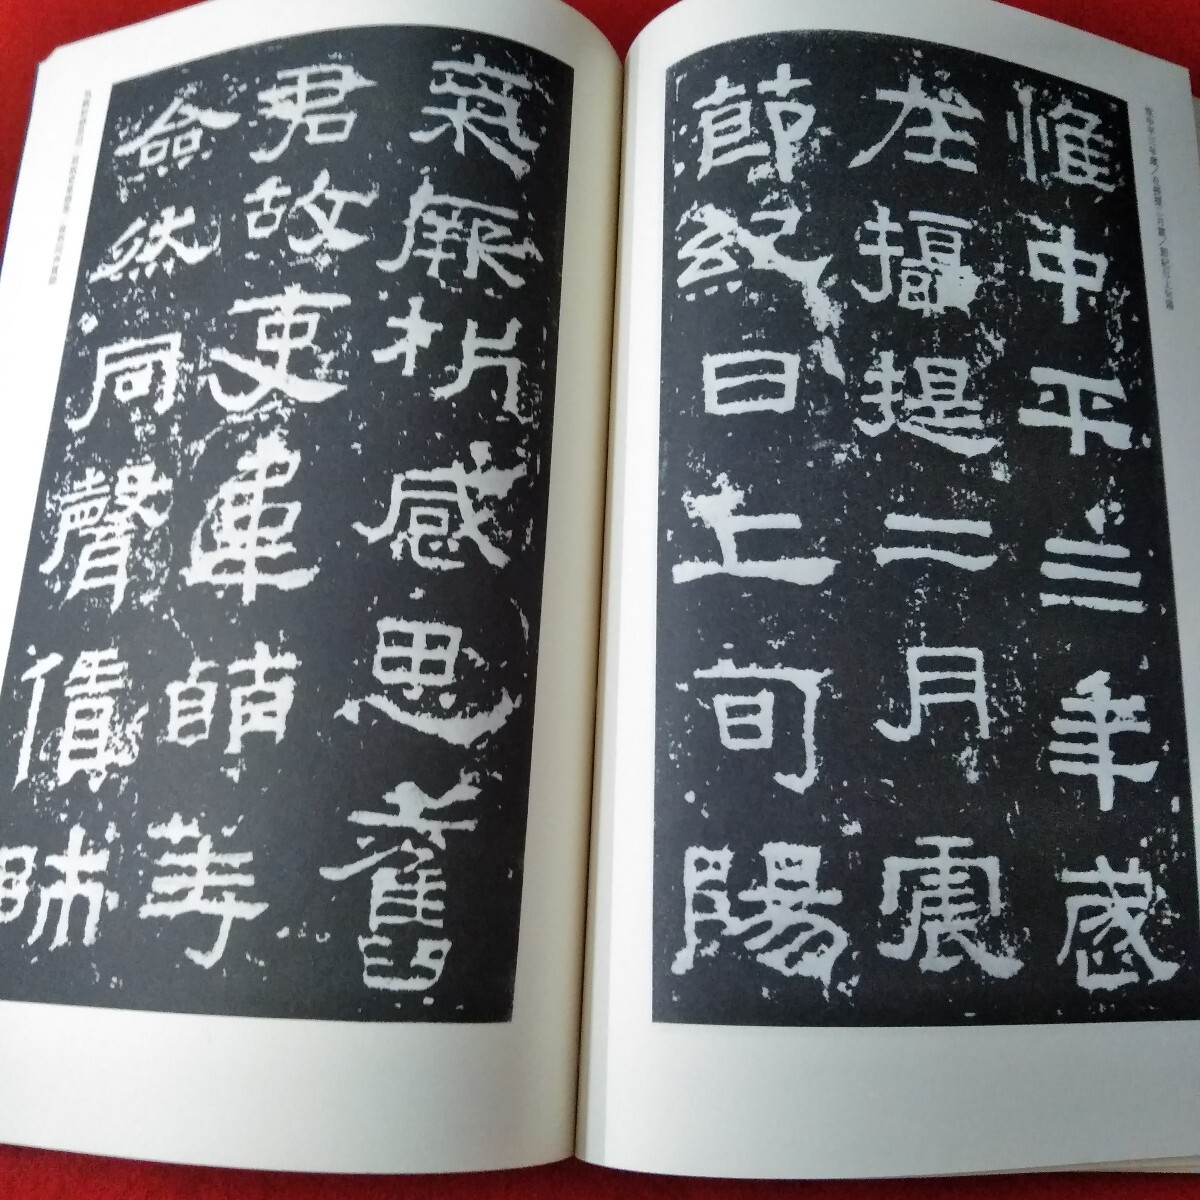 惟中平三年歳
在攝提二月震
節紀日上旬陽
氣厥析感思舊
君故吏韋萌等
僉然同聲賃師